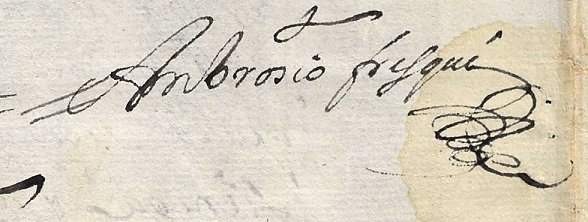 Ambrosio fresqui